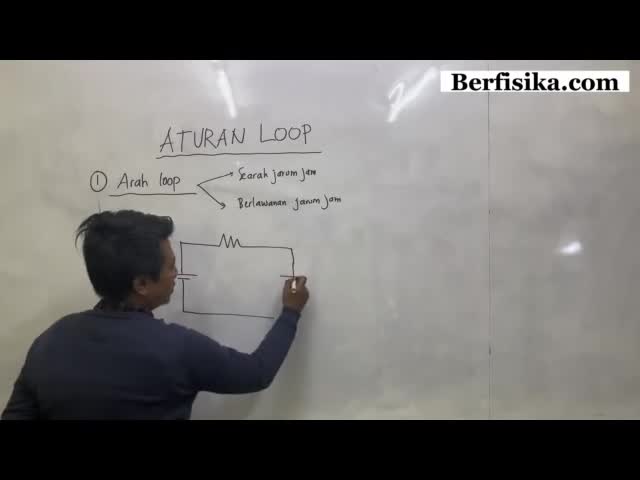 Berfisika.com
ATURAN LOOP
1 Arah loop
Searah jarum jam
Berlawanan jarum jam